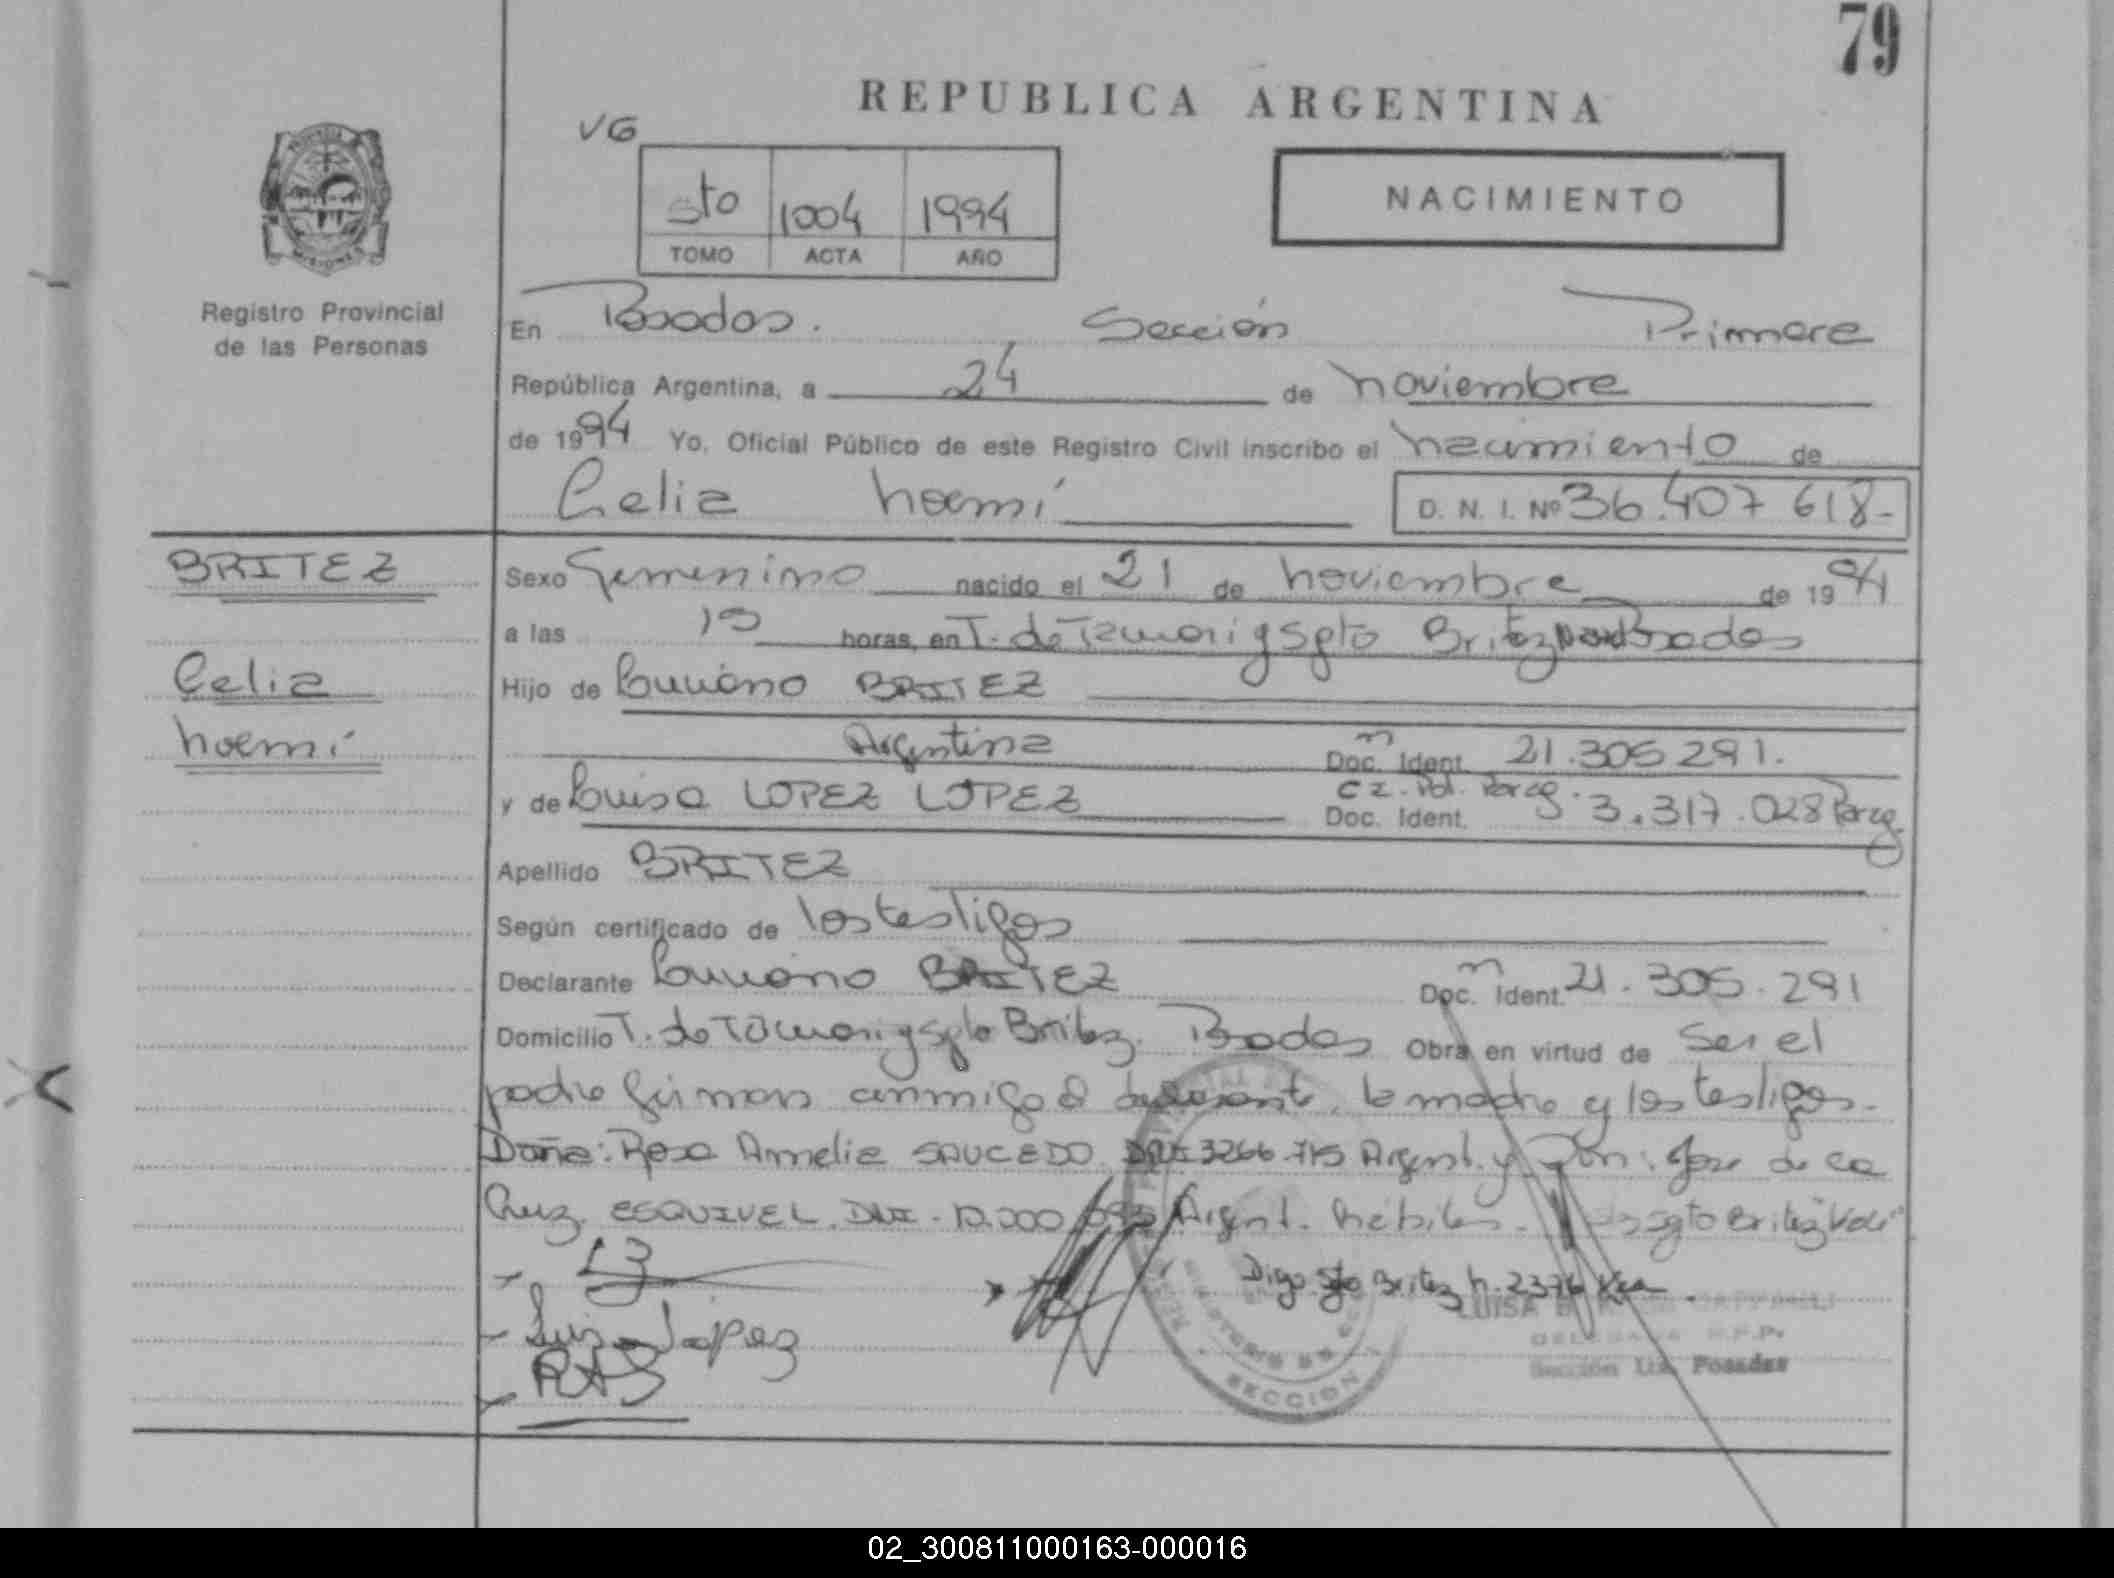 79
REPUBLICA ARGENTINA
VG
5to 1004 1994
TOMO ACTA AÑO
NACIMIENTO
PROVINCIA
MISIONES
Registro Provincial
de las Personas
En Posadas. Sección Primera
República Argentina, a 24 de noviembre
de 1994 Yo, Oficial Público de este Registro Civil inscribo el nacimiento de
Celia Noemí D. N. I. Nº 36.407 618-
BRITEZ
Celia
Noemí
Sexo Femenino nacido el 21 de noviembre de 1994
a las horas, en T. de Tacuari y Sgto Britez Posadas
Hijo de Luciano BRITEZ
Argentina Doc. Ident. 21.305 291.
y de Luisa LOPEZ LOPEZ Cz. Pol. Parag. Doc. Ident. 3.317.028 Parag.
Apellido BRITEZ
Según certificado de los testigos
Declarante Luciano BRITEZ Doc. Ident. 21.305.291
Domicilio T. de Tacuari y Sgto Britez. Posadas Obra en virtud de Ser el
padre firman conmigo el declarante, la madre y los testigos.
Doña: Rosa Amelia SAUCEDO DNI 3266.715 Argent. y Don: Jose de la
Cruz ESQUIVEL. DNI. 10.000 Argent. habiles. sgto Britez Vale
Digo Sgto Britez N. 2376 Vale.
Luisa Lopez
RAS
SECCION
Sección 1ra. Posadas
02_300811000163-000016